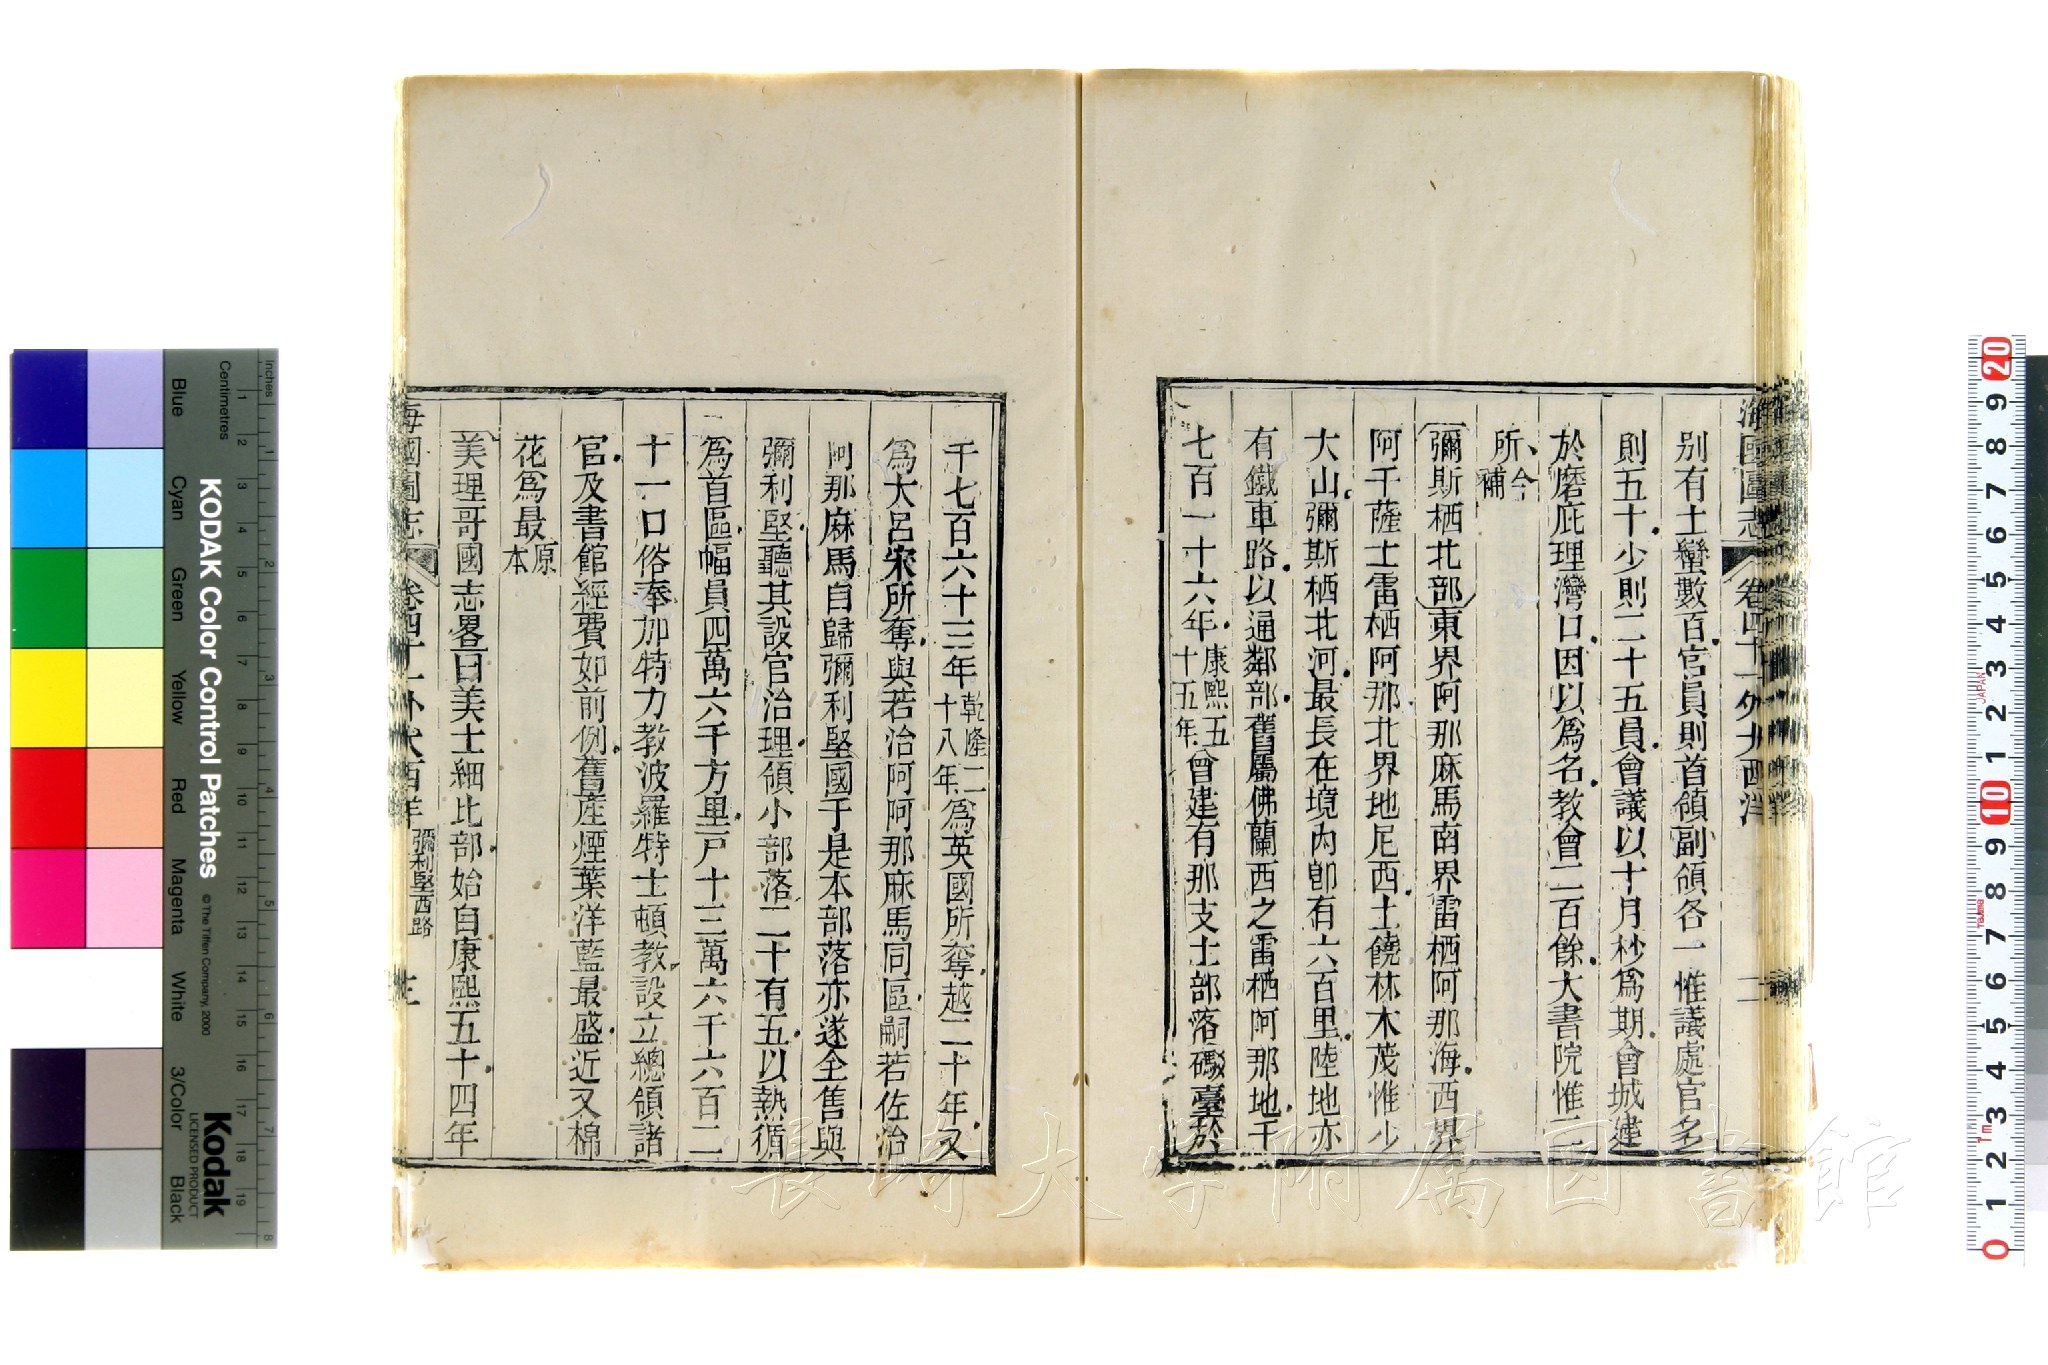 海國圖志 卷四十一外大西洋 二
別有土蠻數百官員則首領副領各一惟議處官多
則五十少則二十五員會議以十月杪爲期會城建
於磨庇理灣口因以爲名教會二百餘大書院惟二
所今補
彌斯栖北部東界阿那麻馬南界雷栖阿那海西界
阿千薩士雷栖阿那北界地尼西土饒林木茂惟少
大山彌斯栖北河最長在境內卽有六百里陸地亦
有鐵車路以通鄰部舊屬佛蘭西之雷栖阿那地千
七百一十六年康熙五十五年曾建有那支土部落礮臺於
千七百六十三年乾隆二十八年爲英國所奪越二十年又
爲大呂宋所奪與若治阿阿那麻馬同區嗣若佐治
阿那麻馬自歸彌利堅國于是本部落亦遂全售與
彌利堅聽其設官治理領小部落二十有五以熱循
爲首區幅員四萬六千方里戸十三萬六千六百二
十一口俗奉加特力教波羅特士頓教設立總領諸
官及書館經費如前例舊產煙葉洋藍最盛近又棉
花爲最原本
美理哥國志畧曰美士細比部始自康熙五十四年
海國圖志 卷四十一外大西洋彌利堅西路 三
長崎大学附属図書館
inches
Centimetres
KODAK Color Control Patches
© The Tiffen Company, 2000
Kodak
LICENSED PRODUCT
Blue Cyan Green Yellow Red Magenta White 3/Color Black
1 2 3 4 5 6 7 8
1 2 3 4 5 6 7 8 9 10 11 12 13 14 15 16 17 18 19
20 9 8 7 6 5 4 3 2 1 10 9 8 7 6 5 4 3 2 1 0
JAPAN